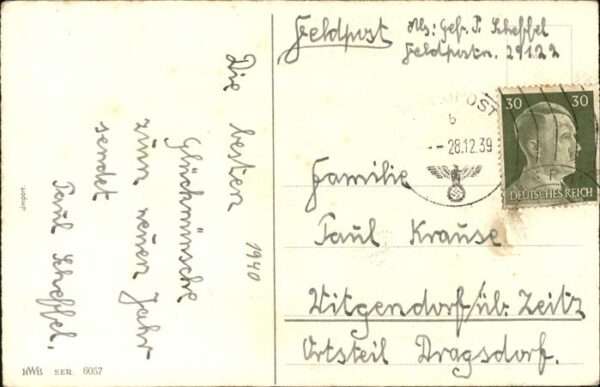 Die besten
Glückwünsche
zum neuen Jahr
1940
sendet
Paul Scheffel.
HWB SER. 6057
Feldpost
Abs: Gefr. P. Scheffel
Feldpostn. 29122
FELDPOST
b
-- 28.12.39
30 30
DEUTSCHES REICH
Familie
Paul Krause
Witgendorf/üb. Zeitz
Ortsteil Dragsdorf.